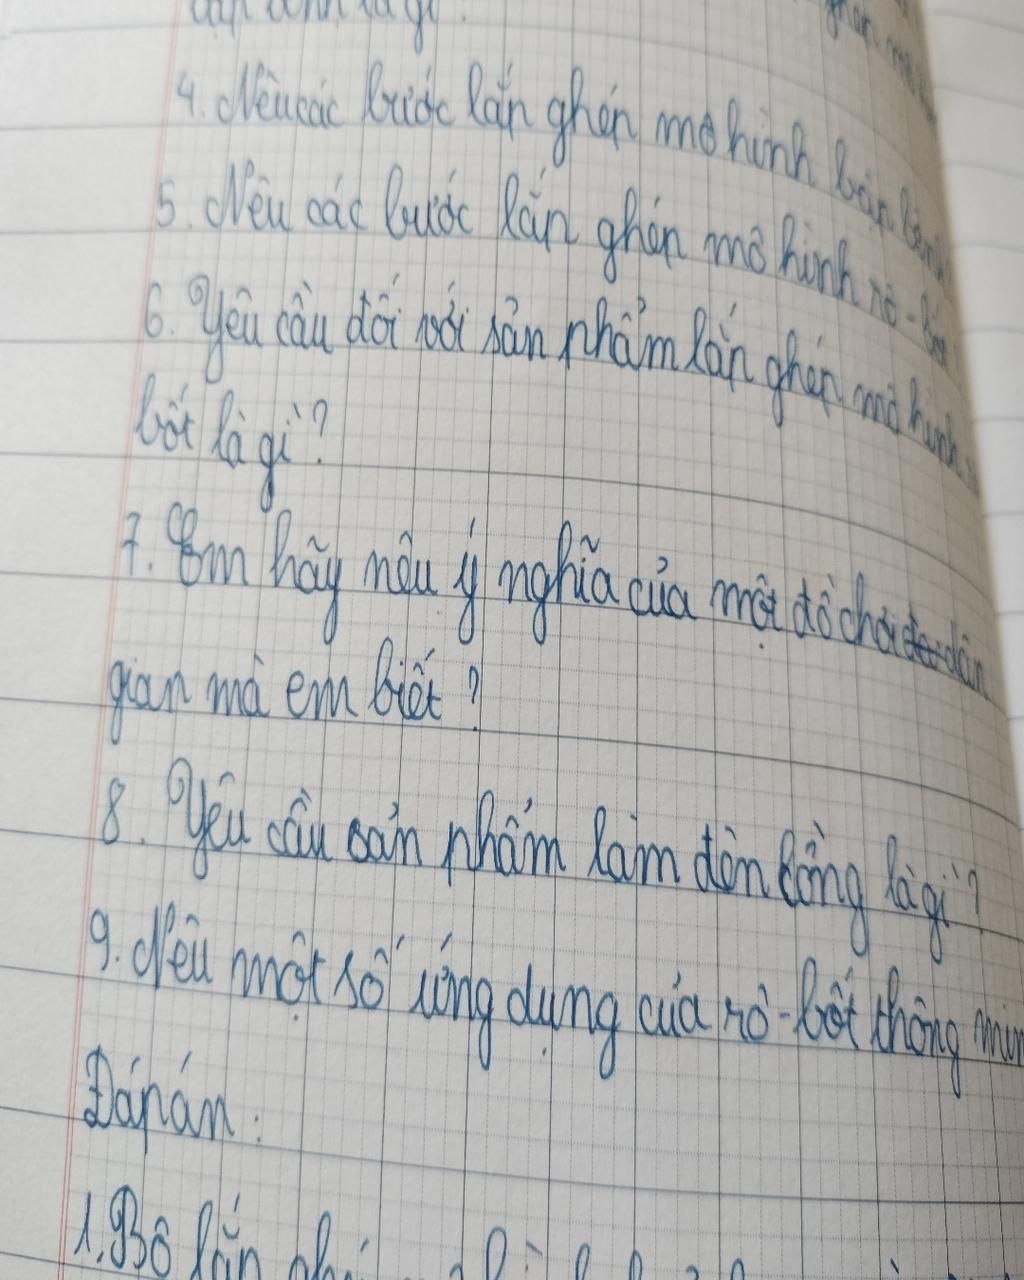 là gì?
4. Nêu các bước lắp ghép mô hình bập bênh
5. Nêu các bước lắp ghép mô hình rô-bốt
6. Yêu cầu đối với sản phẩm lắp ghép mô hình
bốt là gì?
7. Em hãy nêu ý nghĩa của một đồ chơi dân
gian mà em biết?
8. Yêu cầu sản phẩm làm đèn lồng là gì?
9. Nêu một số ứng dụng của rô-bốt thông min
Đáp án:
1. Bộ lắp